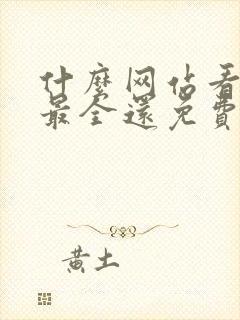 什麼网佔看
最全還免費
黄土